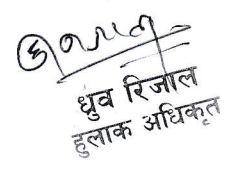 ध्रुव रिजाल
हुलाक अधिकृत